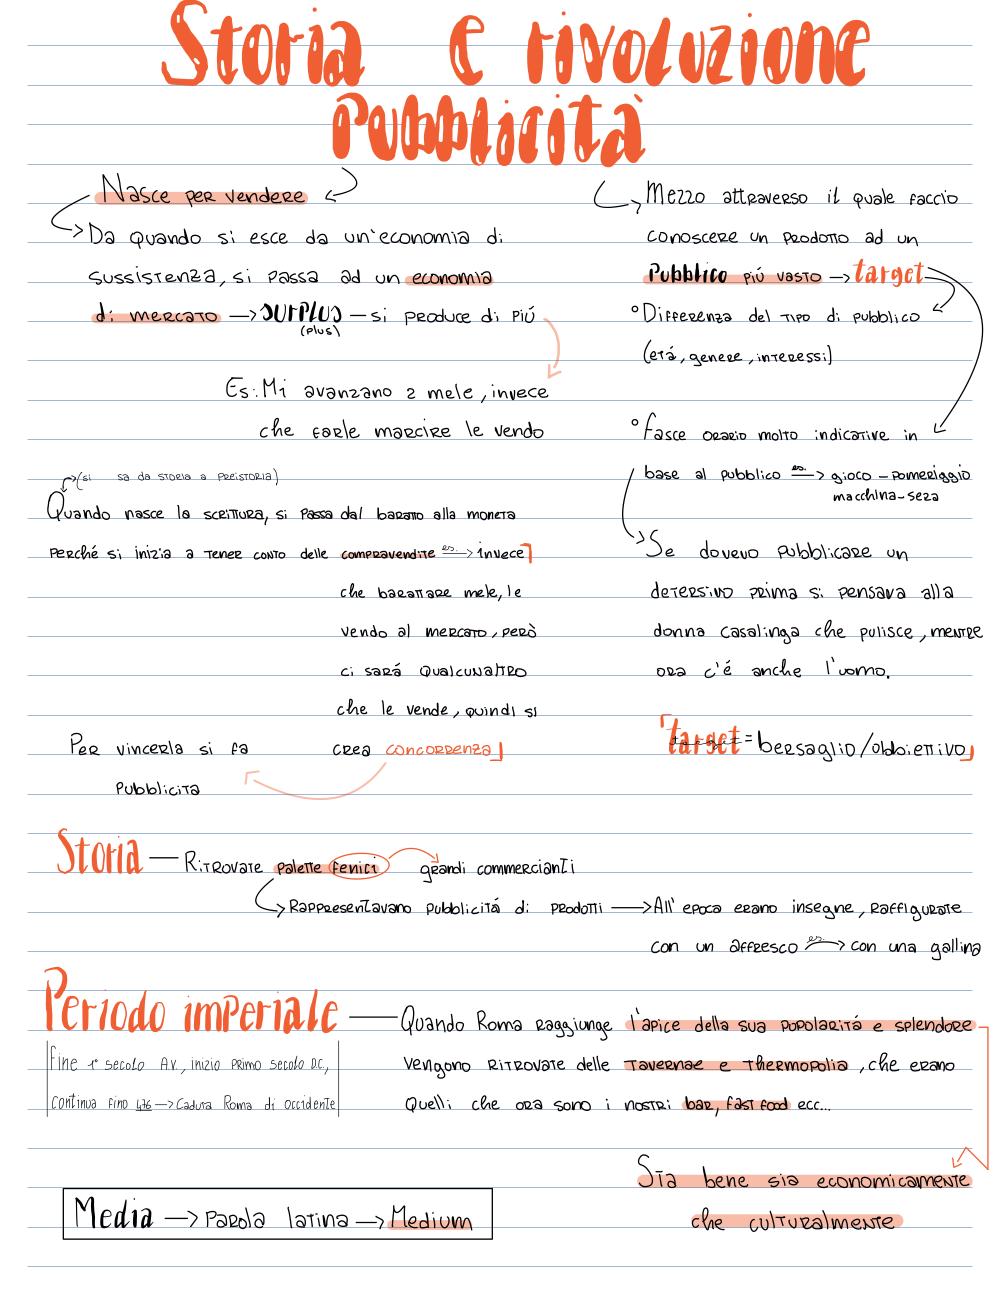 Storia e rivoluzione
Pubblicità
Nasce per vendere
Da quando si esce da un'economia di
sussistenza, si passa ad un economia
di mercato → SURPLUS – si produce di piú
(plus)
Es: Mi avanzano 2 mele, invece
che farle marcire le vendo
(si sa da storia a preistoria)
Quando nasce la scrittura, si passa dal barato alla moneta
perché si inizia a tener conto delle compravendite es. → invece
che barattare mele, le
vendo al mercato, però
ci sará qualcunaltro
che le vende, quindi si
crea concorrenza
Per vincerla si fa
pubblicita
Mezzo attraverso il quale faccio
conoscere un prodotto ad un
Pubblico piú vasto → target
° Differenza del tipo di pubblico
(etá, genere, interessi)
° Fasce orario molto indicative in
base al pubblico es. → gioco – pomeriggio
macchina – sera
Se dovevo pubblicare un
detersivo prima si pensava alla
donna casalinga che pulisce, mentre
ora c'é anche l'uomo.
target = bersaglio/obbiettivo
Storia — Ritrovate palette fenici → grandi commercianti
Rappresentavano pubblicitá di prodotti → All'epoca erano insegne, raffigurate
con un affresco es. → con una gallina
Periodo imperiale — Quando Roma raggiunge l'apice della sua popolaritá e splendore
fine 1° secolo A.V., inizio primo secolo D.C.,
continua fino 476 → Caduta Roma di occidente
vengono ritrovate delle tavernae e thermopolia, che erano
quelli che ora sono i nostri bar, fast food ecc...
Sta bene sia economicamente
che culturalmente
Media → parola latina → Medium